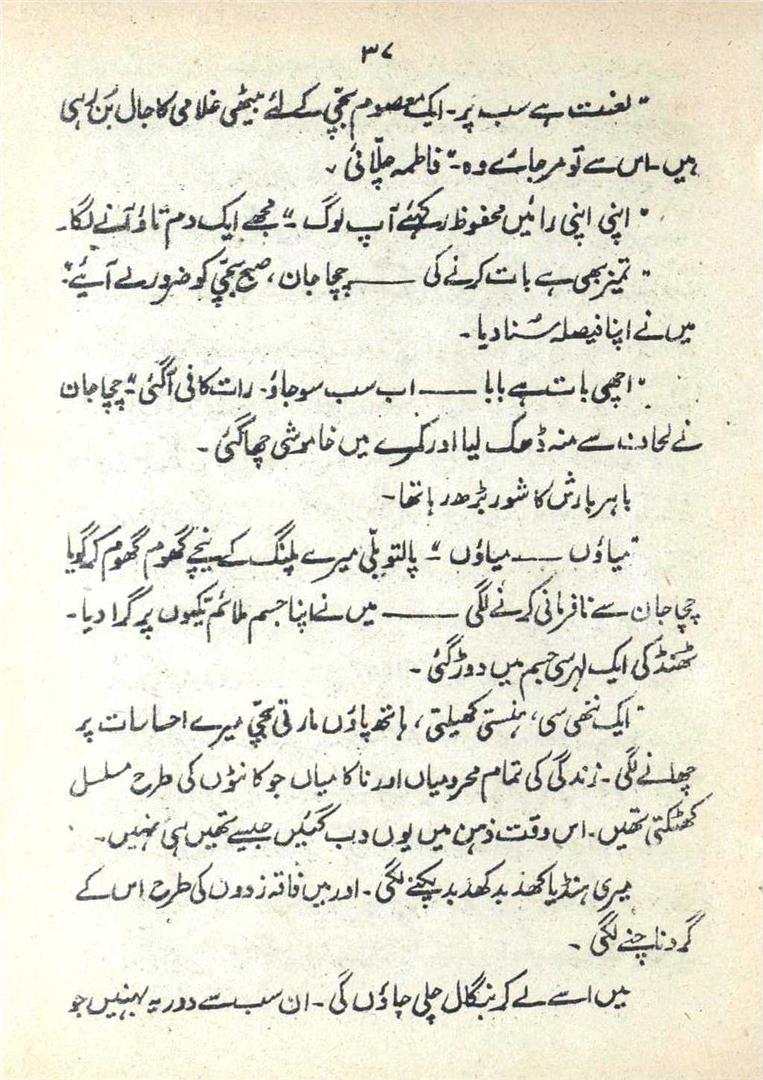 ۳۷
"لعنت ہے سب پر۔ ایک معصوم بچّی کے لئے بیٹھی غلامی کا جال بُن رہی
ہیں۔ اس سے تو مر جائے وہ۔" فاطمہ چلّائی۔
"اپنی اپنی رائیں محفوظ رکھئے آپ لوگ۔" مجھے ایک دم تاؤ آنے لگا۔
"تمیز بھی ہے بات کرنے کی ـــــــ چچا جان، صبح بچّی کو ضرور لے آئیے"
میں نے اپنا فیصلہ سُنا دیا۔
"اچھی بات ہے بابا ـــــــ اب سب سو جاؤ۔ رات کافی آگئی" چچا جان
نے لحاف سے منہ ڈھک لیا اور کمرے میں خاموشی چھا گئی۔
باہر بارش کا شور بڑھ رہا تھا۔
"میاؤں ـــــ میاؤں"۔ پالتو بلّی میرے پلنگ کے نیچے گھوم گھوم کر گویا
چچا جان سے نافرمانی کرنے لگی ـــــــ میں نے اپنا جسم ملائم تکیوں پر گرا دیا۔
ٹھنڈ کی ایک لہر سی جسم میں دوڑ گئی۔
"ایک ننھی سی، ہنستی کھیلتی، ہاتھ پاؤں مارتی بچّی میرے احساسات پر
چھانے لگی۔ زندگی کی تمام محرومیاں اور ناکامیاں جو کانٹوں کی طرح مسلسل
کھٹکتی تھیں۔ اس وقت ذہن میں یوں دب گئیں جیسے تھیں ہی نہیں۔
میری ہنڈیا کھد بد کھد بد پکنے لگی۔ اور میں فاقہ زدوں کی طرح اس کے
گرد ناچنے لگی۔
میں اسے لے کر بنگال چلی جاؤں گی۔ ان سب سے دور یہ بہنیں جو